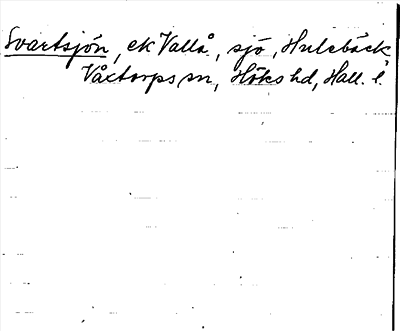 Svartsjön, ek Vallå, sjö, Hulebäck
Våxtorps sn, Höks hd, Hall. l.